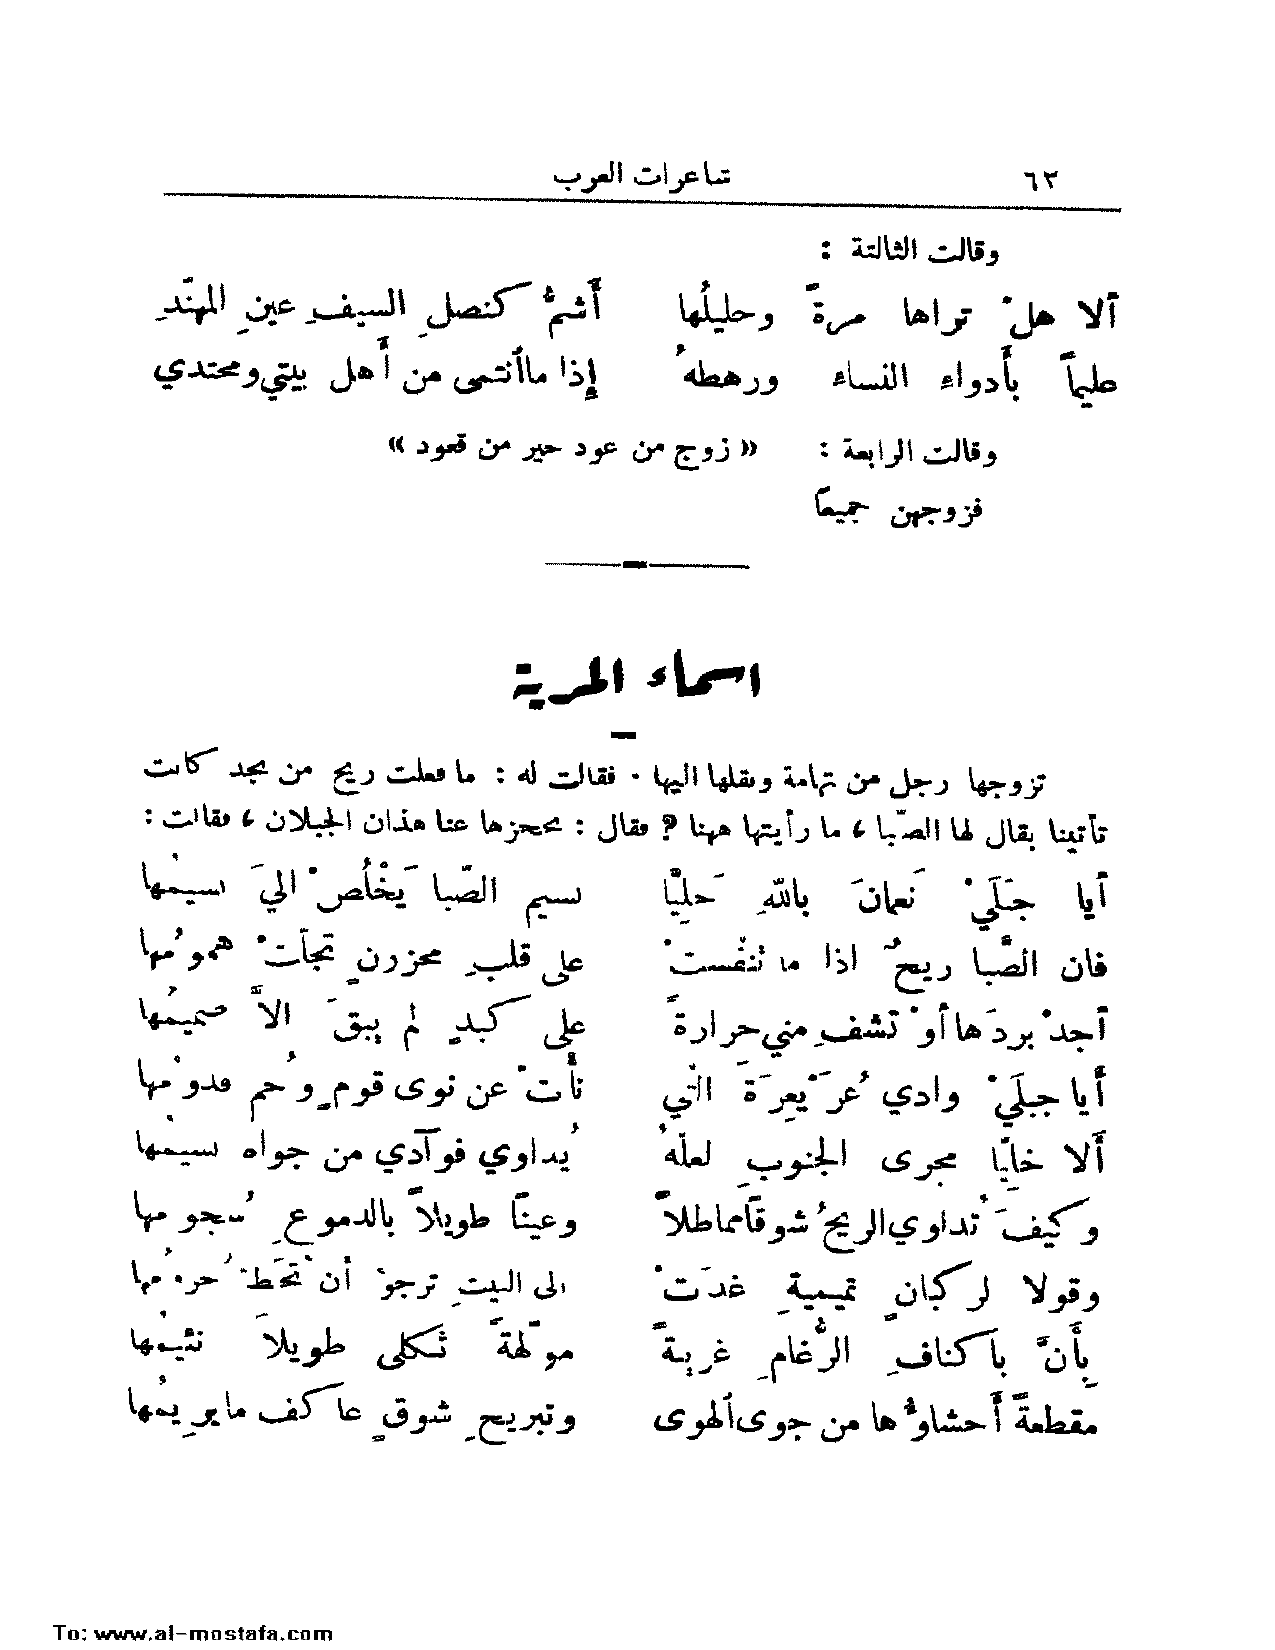 شاعرات العرب ٦٢
وقالت الثالثة :
ألا هلْ تراها مرةً وحليلُها أَشمُّ كنصلِ السيفِ عينِ المهنّدِ
عليماً بأَدواءِ النساء ورهطهُ إِذا ما أنتمى من أَهل بيتي ومحتدي
وقالت الرابعة : « زوج من عود خير من قعود »
فزوجهن جميعاً
اسماء المرية
تزوجها رجل من تهامة ونقلها اليها . فقالت له : ما فعلت ريح من نجد كانت
تأتينا يقال لها الصَّبا ، ما رأيتها ههنا ? فقال : يحجزها عنا هذان الجبلان ، فقالت :
أيا جبَلَيْ نَعمانَ باللهِ خَلِيّا نسيم الصَّبا يَخْلُصْ اليَّ نسيمُها
فان الصَّبا ريحٌ اذا ما تنفَّستْ على قلبِ محزونٍ تجلَّتْ همومُها
أجدْ بردَها أوْ تشفِ مني حرارةً على كبدٍ لم يبقَ الاَّ صميمُها
أَيا جبلَيْ وادي عُرَيْعِرَةَ التي نأَتْ عن نوى قومٍ وحُم قدومُها
أَلا خليّا مجرى الجنوبِ لعلّهُ يُداوي فوآدي من جواه نسيمُها
وكيفَ تُداوي الريحُ شوقًا مماطلاً وعينًا طويلاً بالدموعِ سُجومُها
وقولا لركبانٍ تميميةٍ غدَتْ الى البيتِ ترجو أن تُحَطَّ جُرومُها
بِأَنَّ بأكنافِ الرُّغامِ غريبةً مولَّهةً ثكلى طويلاً نئيمُها
مقطعةً أحشاؤُها من جوى ألهوى وتبريحِ شوقٍ عاكف ما يريمُها
To: www.al-mostafa.com